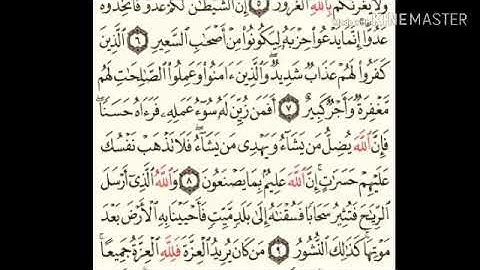 وَلَا يَغُرَّنَّكُم بِاللَّهِ الْغَرُورُ ۝٥ إِنَّ الشَّيْطَٰنَ لَكُمْ عَدُوٌّ فَاتَّخِذُوهُ
عَدُوًّا إِنَّمَا يَدْعُوا۟ حِزْبَهُۥ لِيَكُونُوا۟ مِنْ أَصْحَٰبِ السَّعِيرِ ۝٦ الَّذِينَ
كَفَرُوا۟ لَهُمْ عَذَابٌ شَدِيدٌ وَالَّذِينَ ءَامَنُوا۟ وَعَمِلُوا۟ الصَّٰلِحَٰتِ لَهُم
مَّغْفِرَةٌ وَأَجْرٌ كَبِيرٌ ۝٧ أَفَمَن زُيِّنَ لَهُۥ سُوٓءُ عَمَلِهِۦ فَرَءَاهُ حَسَنًا
فَإِنَّ اللَّهَ يُضِلُّ مَن يَشَآءُ وَيَهْدِى مَن يَشَآءُ فَلَا تَذْهَبْ نَفْسُكَ
عَلَيْهِمْ حَسَرَٰتٍ إِنَّ اللَّهَ عَلِيمٌۢ بِمَا يَصْنَعُونَ ۝٨ وَاللَّهُ الَّذِىٓ أَرْسَلَ
الرِّيَٰحَ فَتُثِيرُ سَحَابًا فَسُقْنَٰهُ إِلَىٰ بَلَدٍ مَّيِّتٍ فَأَحْيَيْنَا بِهِ الْأَرْضَ بَعْدَ
مَوْتِهَا كَذَٰلِكَ النُّشُورُ ۝٩ مَن كَانَ يُرِيدُ الْعِزَّةَ فَلِلَّهِ الْعِزَّةُ جَمِيعًا
KINEMASTER